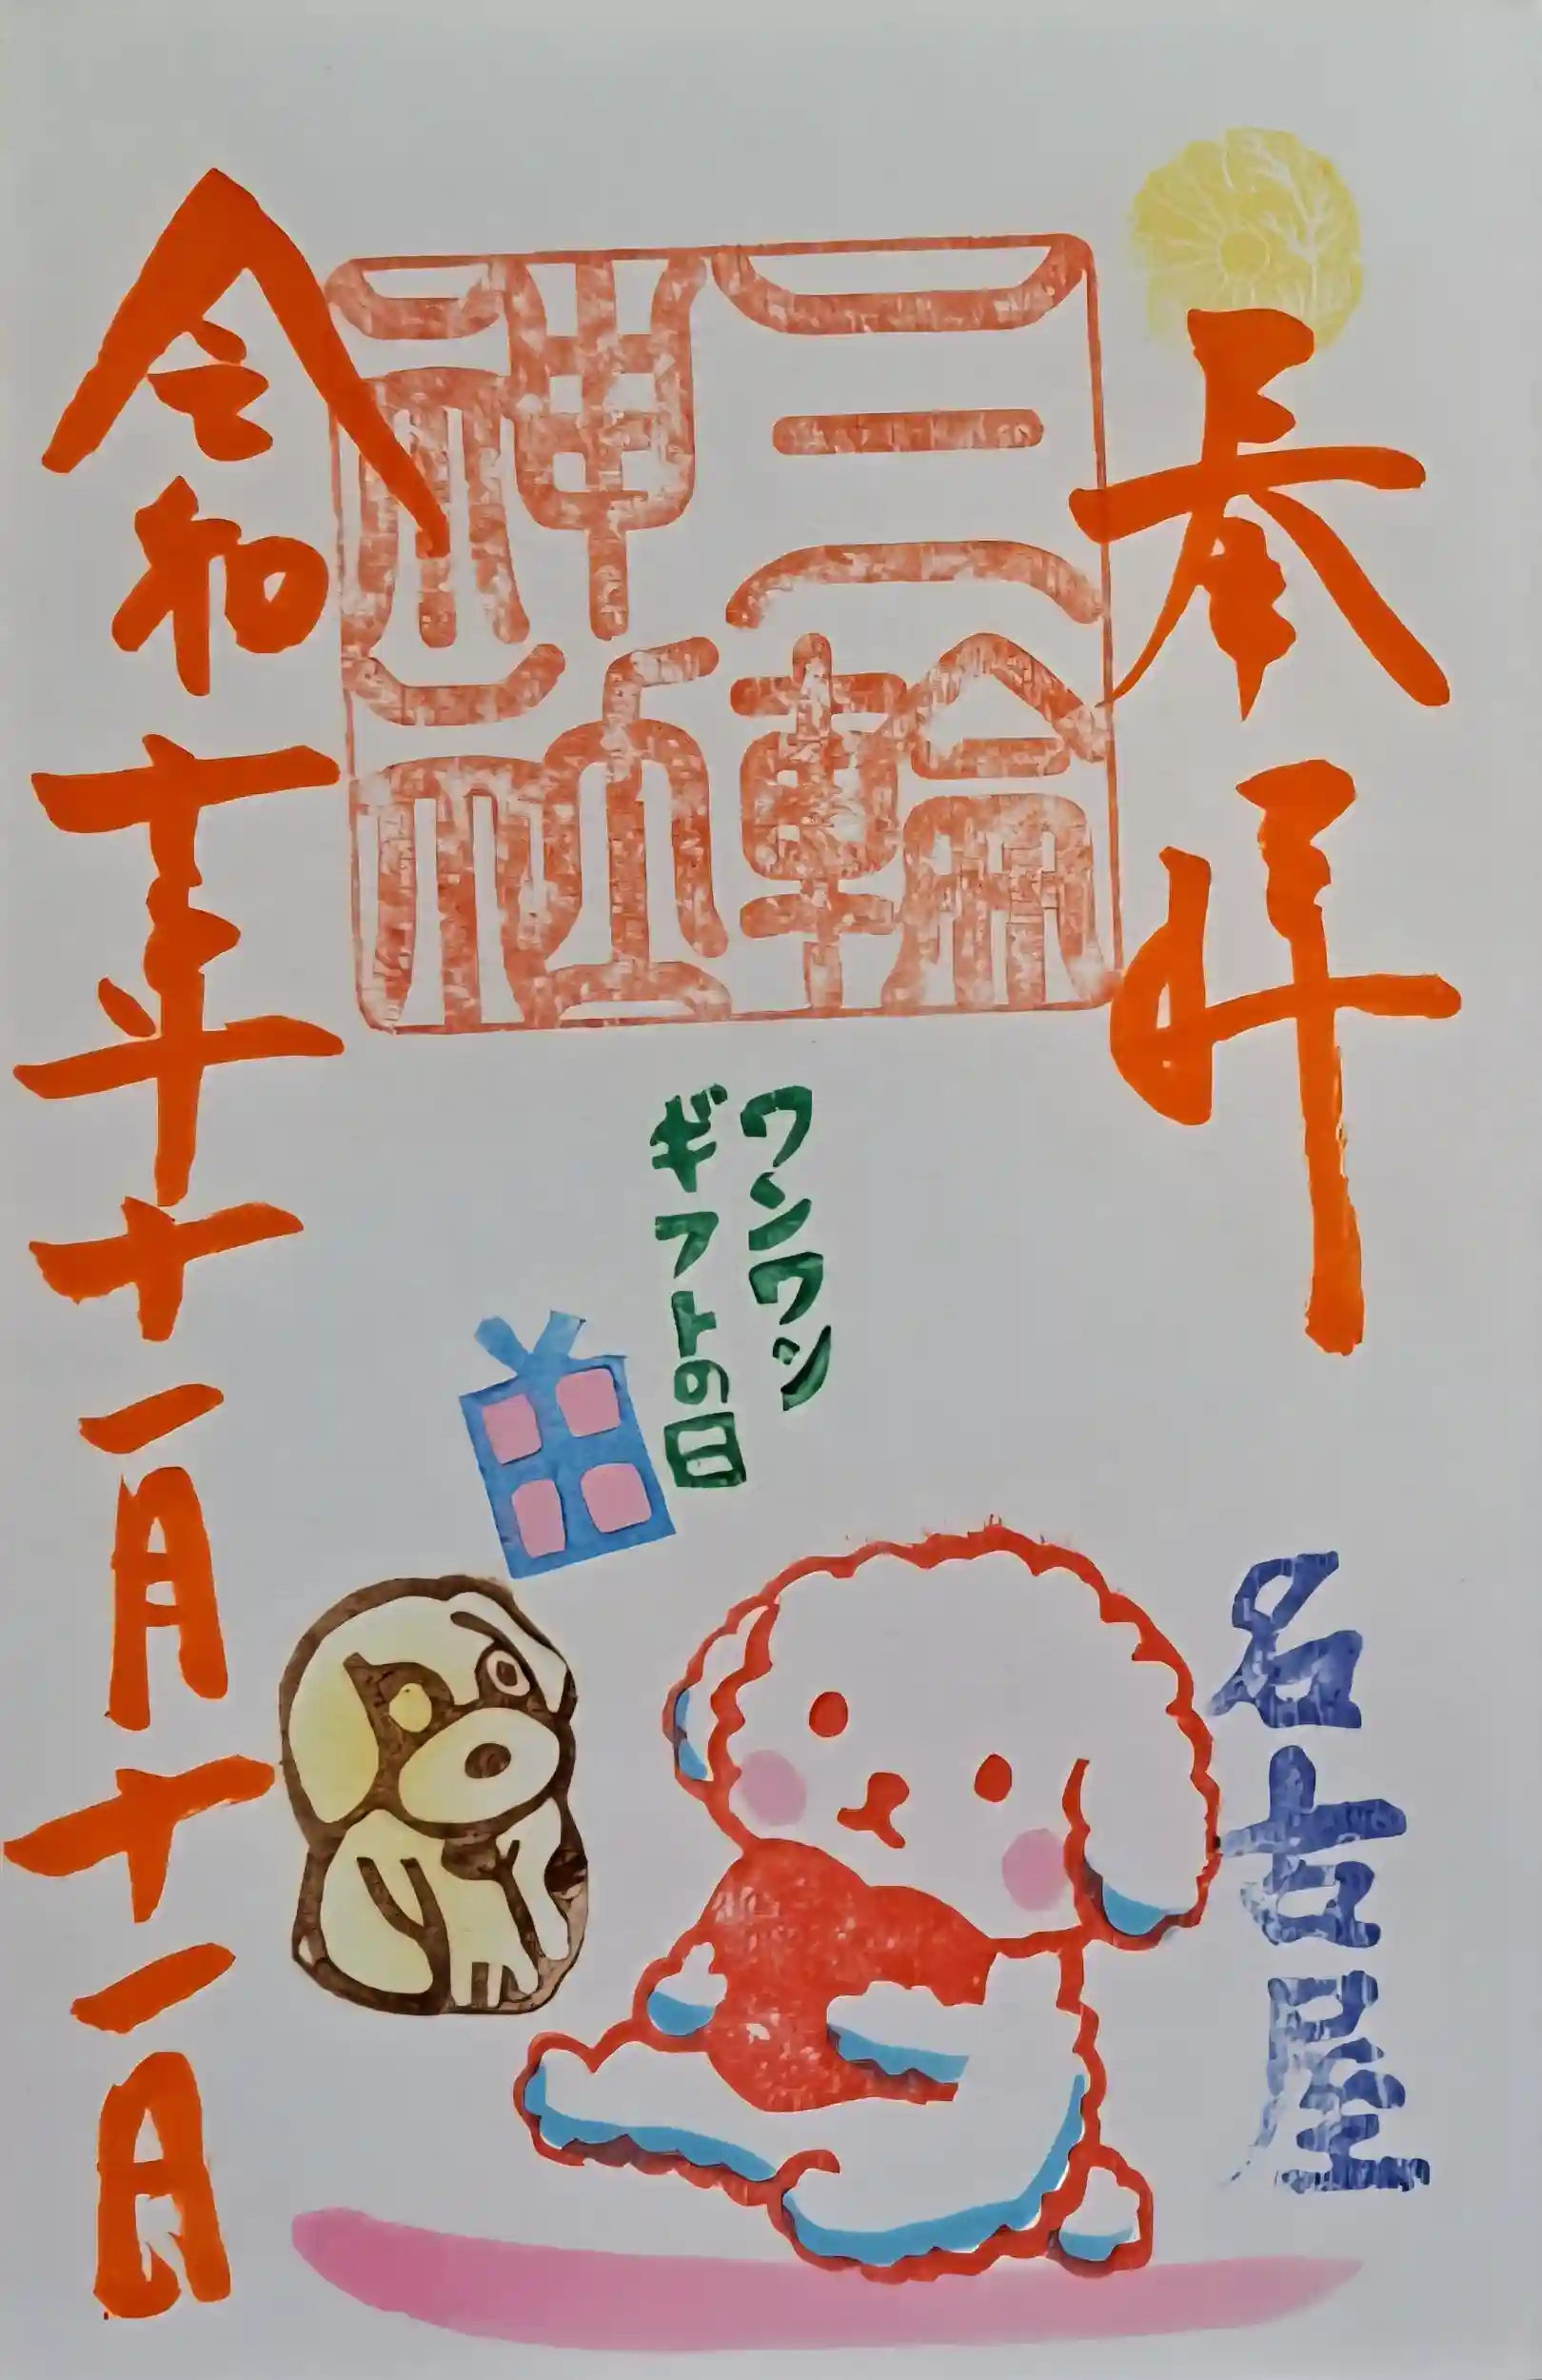 奉拝
三輪
神社
ワンワン
ギフトの日
名古屋
令和年十一月十一日